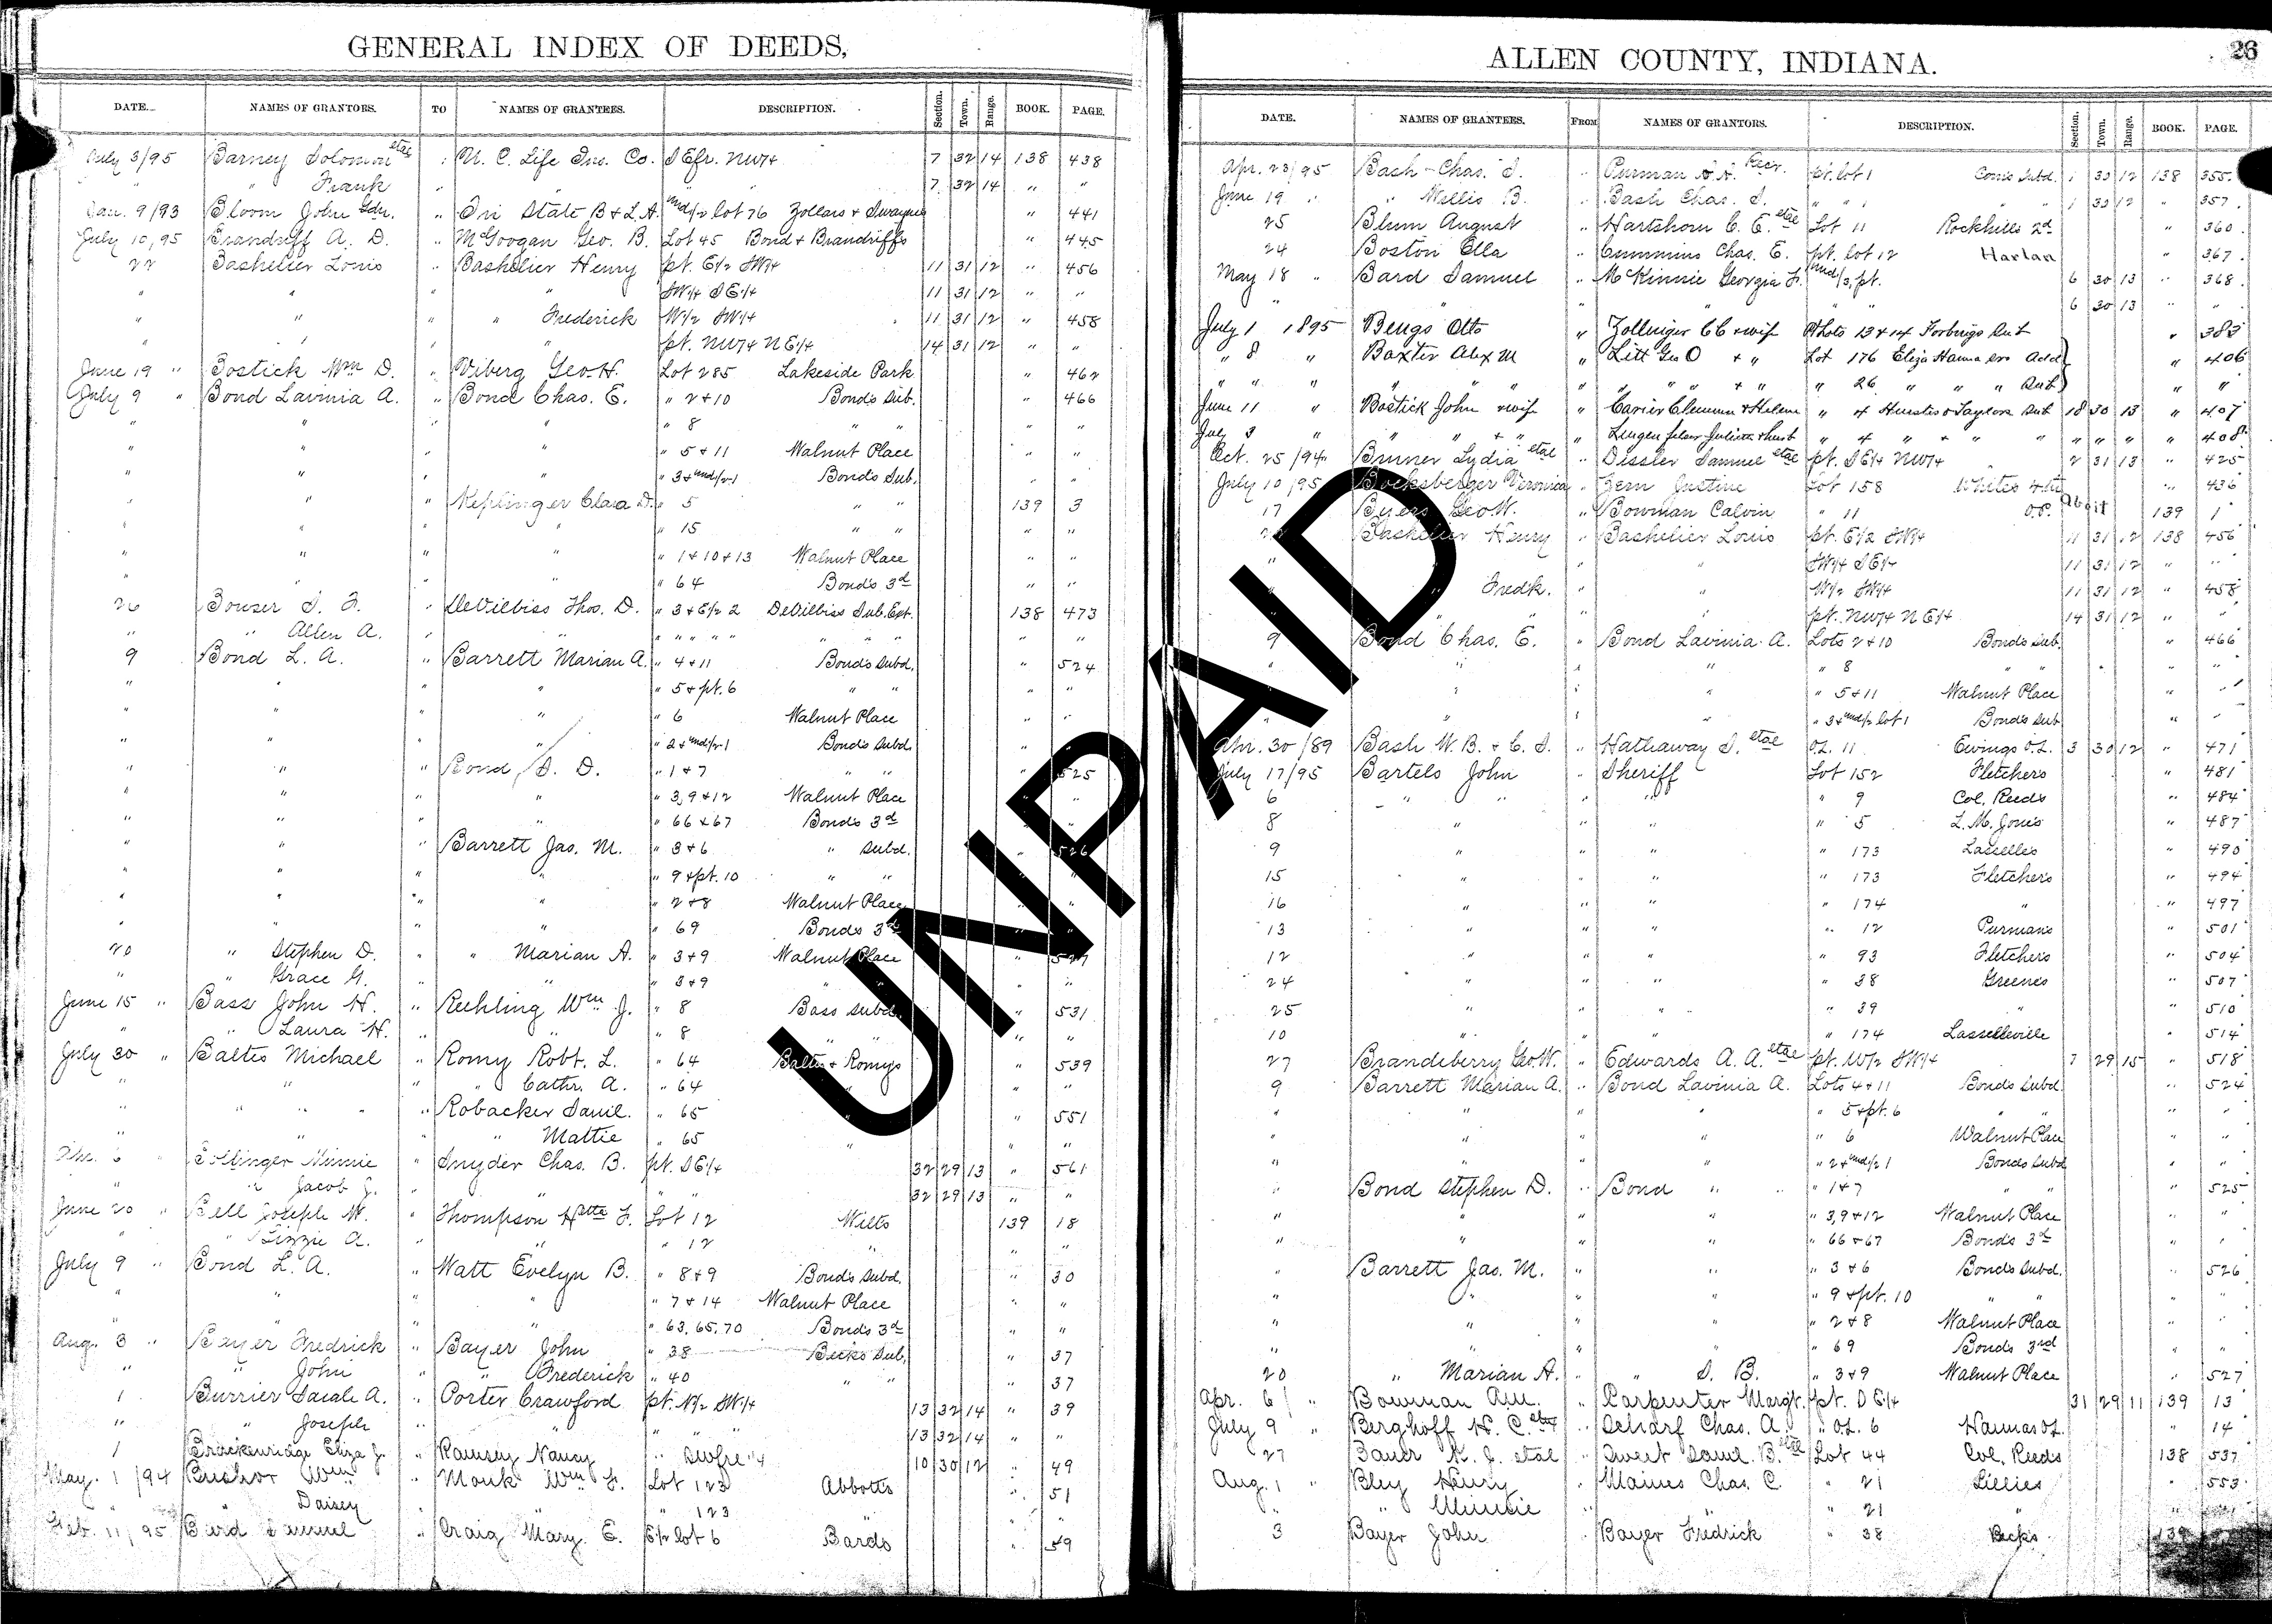 GENERAL INDEX OF DEEDS,
DATE. NAMES OF GRANTORS. TO NAMES OF GRANTEES. DESCRIPTION. Section. Town. Range. BOOK. PAGE.
July 3/95 Barney Solomon etal " U. C. Life Ins. Co. S Efr. NW¼ 7 32 14 138 438
" " Frank " " " " 7 32 14 " "
Jan. 9/93 Bloom John " Tri State B & L A. und½ lot 76 Zollars & Swaynes " 441
July 10,95 Brandriff A. D. " McGoogan Geo. B. Lot 45 Bond & Brandriffs " 445
22 Bashelier Louis " Bashelier Henry pt. E½ SW¼ 11 31 12 " 456
" " " SW¼ SE¼ 11 31 12 " "
" " " " Frederick W½ SW¼ 11 31 12 " 458
" " " pt. NW¼ NE¼ 14 31 12 " "
June 19 " Bostick Wm D. " Viberg Geo. H. Lot 285 Lakeside Park " 462
July 9 " Bond Lavinia A. " Bond Chas. E. " 2 & 10 Bond's Sub. " 466
" " " " " 8 " " " "
" " " " " 5 & 11 Walnut Place " "
" " " " " 3 & und½-1 Bond's Sub. " "
" " " Keplinger Clara D. " 5 " " 139 3
" " " " " 15 " " " "
" " " " " 1 & 10 & 13 Walnut Place " "
" " " " " 64 Bond's 3d " "
26 Bouser S. F. " DeVilbiss Thos. D. " 3 & E½ 2 DeVilbiss Sub. Ext. 138 473
" " Allen A. " " " " " " " " " " "
9 Bond L. A. " Barrett Marian A. " 4 & 11 Bond's Subd. " 524
" " " " " 5 & pt. 6 " " " "
" " " " " 6 Walnut Place " "
" " " " " 2 & und½-1 Bond's Subd. "
" " " Bond S. D. " 1 & 7 " " 525
" " " " " 3, 9 & 12 Walnut Place "
" " " " " 66 & 67 Bond's 3d "
" " " Barrett Jas. M. " 3 & 6 " Subd. " 526
" " " " " 9 & pt. 10 " "
" " " " " 2 & 8 Walnut Place " "
" " " " " 69 Bond's 3d " "
20 " Stephen D. " " Marian A. " 3 & 9 Walnut Place " 527
" " Grace G. " " " 3 & 9 " " " "
June 15 " Bass John H. " Rechling Wm J. " 8 Bass Subd. " 531
" " Laura H. " " " 8 " " " "
July 30 " Baltes Michael " Romy Robt. L. " 64 Baltes & Romys " 539
" " " " Cathr. A. " 64 " " "
" " " Robacker Saml. " 65 " 551
" " " " Mattie " 65 " " "
6 Bollinger Minnie " Snyder Chas. B. pt. SE¼ 32 29 13 " 561
" " Jacob J. " " " " 32 29 13 " "
June 20 " Bell Joseph W. " Thompson F. Lot 12 Wilts 139 18
" " Lizzie A. " " " 12 " " "
July 9 " Bond L. A. " Watt Evelyn B. " 8 & 9 Bond's Subd. " 30
" " " " " 7 & 14 Walnut Place " "
" " " " " 63, 65, 70 Bond's 3d " "
Aug. 3 " Bayer Fredrick " Bayer John " 38 Becks Sub. " 37
" " John " " Frederick " 40 " " " 37
1 Burrier Sarah A. " Porter Crawford pt. N½ SW¼ 13 32 14 " 39
" " Joseph " " " " 13 32 14 " "
1 Brackenridge Eliza J. " Ramsey Nancy " 10 30 12 " 49
May. 1/94 Wm " Monk Wm F. Lot 123 Abbotts " 51
" Daisey " " " 123 " " "
Feb. 11/95 Bard Samuel " Craig Mary E. E½ lot 6 Bards " 59
ALLEN COUNTY, INDIANA.
26
DATE. NAMES OF GRANTEES. FROM NAMES OF GRANTORS. DESCRIPTION. Section. Town. Range. BOOK. PAGE.
Apr. 23/95 Bash Chas. S. " Purman A. A. Recr. pt. lot 1 Coms Subd. 1 30 12 138 355
June 19 " " Willis B. " Bash Chas. S. " " 1 " " 1 30 12 " 357
25 Blum August " Hartshorn C. E. etal Lot 11 Rockhills 2d " 360
24 Boston Ella " Cummins Chas. E. pt. lot 12 Harlan " 367
May 18 " Bard Samuel " McKinnie Georgia F. und⅓ pt. 6 30 13 " 368
" " " " " 6 30 13 " "
July 1 1895 Bengs Otto " Zollinger C C & wife Lots 13 & 14 Forbings Sub " 383
" 8 " Baxter Alex M " Litt Geo O & " Lot 176 Eliza Hanna Add " 406
" " " " " " " " " & " " 26 " " " Sub " "
June 11 " Bostick John & wife " Carier Clemma & Helene " 4 Huestis & Taylors Sub 18 30 13 " 407
July 3 " " " & " " Lingenfelser Julietta & husb " 4 " & " " " " " " 408
Oct. 25/94 Bruner Lydia etal " Dissler Samuel etal pt. SE¼ NW¼ 2 31 13 " 425
July 10/95 Bocksberger Veronica " Zern Justine Lot 158 Whites 4th " 436
17 Byers Geo. W. " Bowman Calvin " 11 O.P. Aboit 139 1
22 Bashelier Henry " Bashelier Louis pt. E½ SW¼ 11 31 12 138 456
" " " " SW¼ SE¼ 11 31 12 " "
" " Fredk. " " W½ SW¼ 11 31 12 " 458
" " " " pt. NW¼ NE¼ 14 31 12 " "
9 Bond Chas. E. " Bond Lavinia A. Lots 2 & 10 Bond's Sub. " 466
" " " " " 8 " " " "
" " " " " 5 & 11 Walnut Place " "
" " " " " 3 & und½ lot 1 Bond's Sub " "
Apr. 30/89 Bash W. B. & C. S. " Hathaway S. etal O.L. 11 Ewings O.L. 3 30 12 " 471
July 17/95 Bartels John " Sheriff Lot 152 Fletchers " 481
6 " " " " " 9 Col. Reeds " 484
8 " " " " 5 L. M. Jones " 487
9 " " " " 173 Lasselles " 490
15 " " " " 173 Fletchers " 494
16 " " " " 174 " " 497
13 " " " " 12 Purmans " 501
12 " " " " 93 Fletchers " 504
24 " " " " 38 Greenes " 507
25 " " " " 39 " " 510
10 " " " " 174 Lasselleville " 514
27 Brandeberry Geo. W. " Edwards A. A. etal pt. W½ SW¼ 7 29 15 " 518
9 Barrett Marian A. " Bond Lavinia A. Lots 4 & 11 Bond's Subd " 524
" " " " " 5 & pt. 6 " " " "
" " " " " 6 Walnut Place " "
" " " " " 2 & und½ 1 Bond's Subd " "
" Bond Stephen D. " Bond " " " 1 & 7 " " " 525
" " " " " 3, 9 & 12 Walnut Place " "
" " " " " 66 & 67 Bond's 3d " "
" Barrett Jas. M. " " " 3 & 6 Bond's Subd. " 526
" " " " " 9 & pt. 10 " " " "
" " " " " 2 & 8 Walnut Place " "
" " " " " 69 Bonds 3rd " "
20 " Marian A. " " S. B. " 3 & 9 Walnut Place " 527
Apr. 6 " Bowman " Carpenter Margt. pt. SE¼ 31 29 11 139 13
July 9 " Berghoff H. C. etal " Scharf Chas. A. " O.L. 6 Hannas O.L. " 14
27 Bauer K. J. etal " Sweet Saml. B. etal Lot 44 Col. Reeds 138 537
Aug. 1 " Bley Henry " Maines Chas. C. " 21 Lillies " 553
" " Minnie " " " 21 " " "
3 Bayer John " Bayer Fredrick " 38 Becks 139
UNPAID